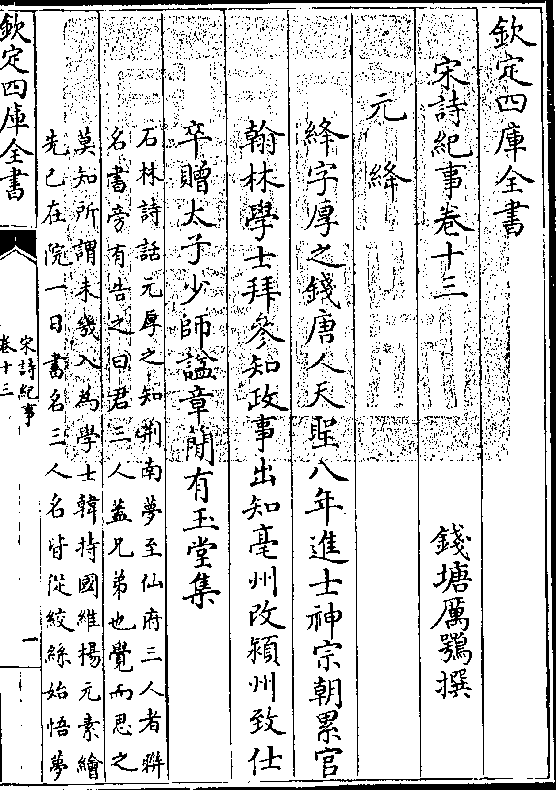 欽定四庫全書
宋詩紀事卷十三
錢塘厲鶚撰
元絳
絳字厚之錢唐人天聖八年進士神宗朝累官
翰林學士拜參知政事出知亳州改潁州致仕
卒贈太子少師諡章簡有玉堂集
石林詩話元厚之知荆南夢至仙府三人者聨
名書旁有告之曰君三人蓋兄弟也覺而思之
莫知所謂未幾入為學士韓持國維楊元素繪
先已在院一日書名三人名皆從絞絲始悟夢
欽定四庫全書
宋詩紀事
卷十三
一